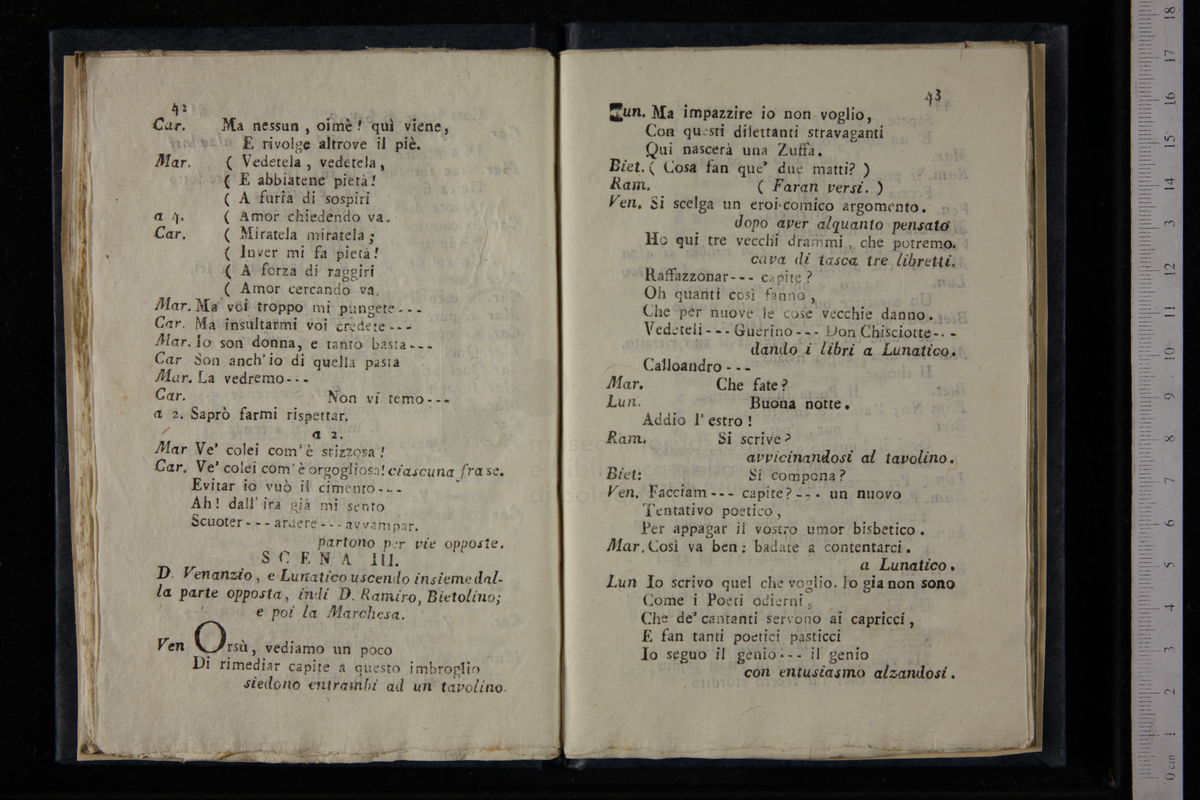 42
Car. Ma nessun, oimè! quì viene,
E rivolge altrove il piè.
Mar. ( Vedetela, vedetela,
( E abbiatene pietà!
( A furia di sospiri
a 4. ( Amor chiedendo va.
Car. ( Miratela miratela;
( Inver mi fa pietà!
( A forza di raggiri
( Amor cercando va.
Mar. Ma voi troppo mi pungete---
Car. Ma insultarmi voi credete---
Mar. Io son donna, e tanto basta---
Car Son anch'io di quella pasta
Mar. La vedremo---
Car. Non vi temo---
a 2. Saprò farmi rispettar.
a 2.
Mar Ve' colei com'è stizzosa!
Car. Ve' colei com'è orgogliosa! ciascuna fra se.
Evitar io vuò il cimento---
Ah! dall'ira già mi sento
Scuoter---ardere---avvampar.
partono per vie opposte.
SCENA III.
D. Venanzio, e Lunatico uscendo insieme dal-
la parte opposta, indi D. Ramiro, Bietolino;
e poi la Marchesa.
Ven Orsù, vediamo un poco
Di rimediar capite a questo imbroglio
siedono entrambi ad un tavolino.
43
Lun. Ma impazzire io non voglio,
Con questi dilettanti stravaganti
Qui nascerà una Zuffa.
Biet. ( Cosa fan que' due matti? )
Ram. ( Faran versi. )
Ven. Si scelga un eroi-comico argomento.
dopo aver alquanto pensato
Ho qui tre vecchi drammi, che potremo.
cava di tasca tre libretti.
Raffazzonar--- capite?
Oh quanti così fanno,
Che per nuove le cose vecchie danno.
Vedeteli---Guerino---Don Chisciotte---
dando i libri a Lunatico.
Calloandro---
Mar. Che fate?
Lun. Buona notte.
Addio l'estro!
Ram. Si scrive?
avvicinandosi al tavolino.
Biet: Si compona?
Ven. Facciam--- capite?--- un nuovo
Tentativo poetico,
Per appagar il vostro umor bisbetico.
Mar. Così va ben: badate a contentarci.
a Lunatico.
Lun Io scrivo quel che voglio. Io gia non sono
Come i Poeti odierni,
Che de' cantanti servono ai capricci,
E fan tanti poetici pasticci
Io seguo il genio--- il genio
con entusiasmo alzandosi.